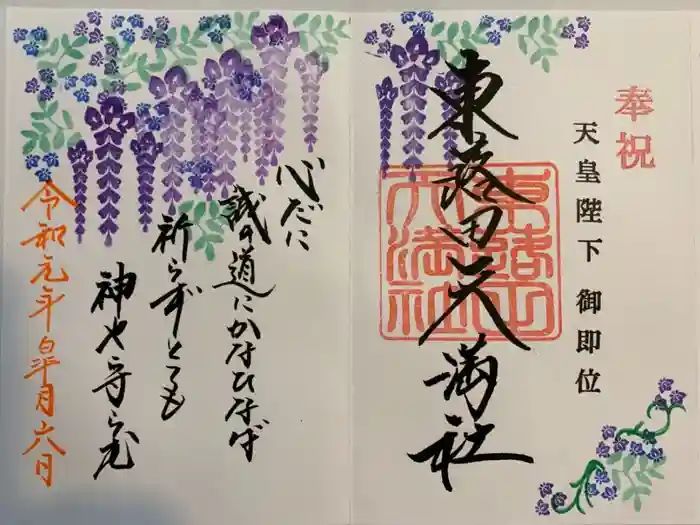 奉祝
天皇陛下 御即位
東蕗田天満社
東蕗田
天満社
心だに
誠の道にかなひなば
祈らずとても
神や守らむ
令和元年皐月六日